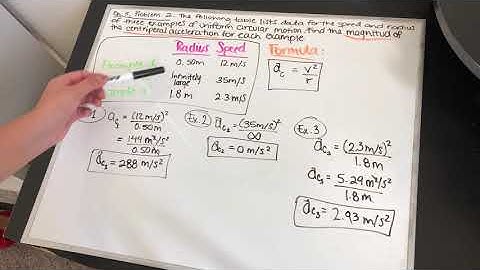 Ch. 5 Problem 2 - The following table lists data for the speed and radius
of three examples of uniform circular motion. Find the magnitud of
the centripetal acceleration for each example
Radius Speed
0.50m 12 m/s
Infinitely large 35m/s
1.8 m 2.3 m/s
Formula:
ac = v²/r
1 ac₁ = (12 m/s)²/0.50m
= 144 m²/s²/0.50m
ac₁ = 288 m/s²
Ex. 2 ac₂ = (35m/s)²/∞
ac₂ = 0 m/s²
Ex. 3
ac₃ = (2.3m/s)²/1.8m
ac₃ = 5.29 m²/s²/1.8m
ac₃ = 2.93 m/s²